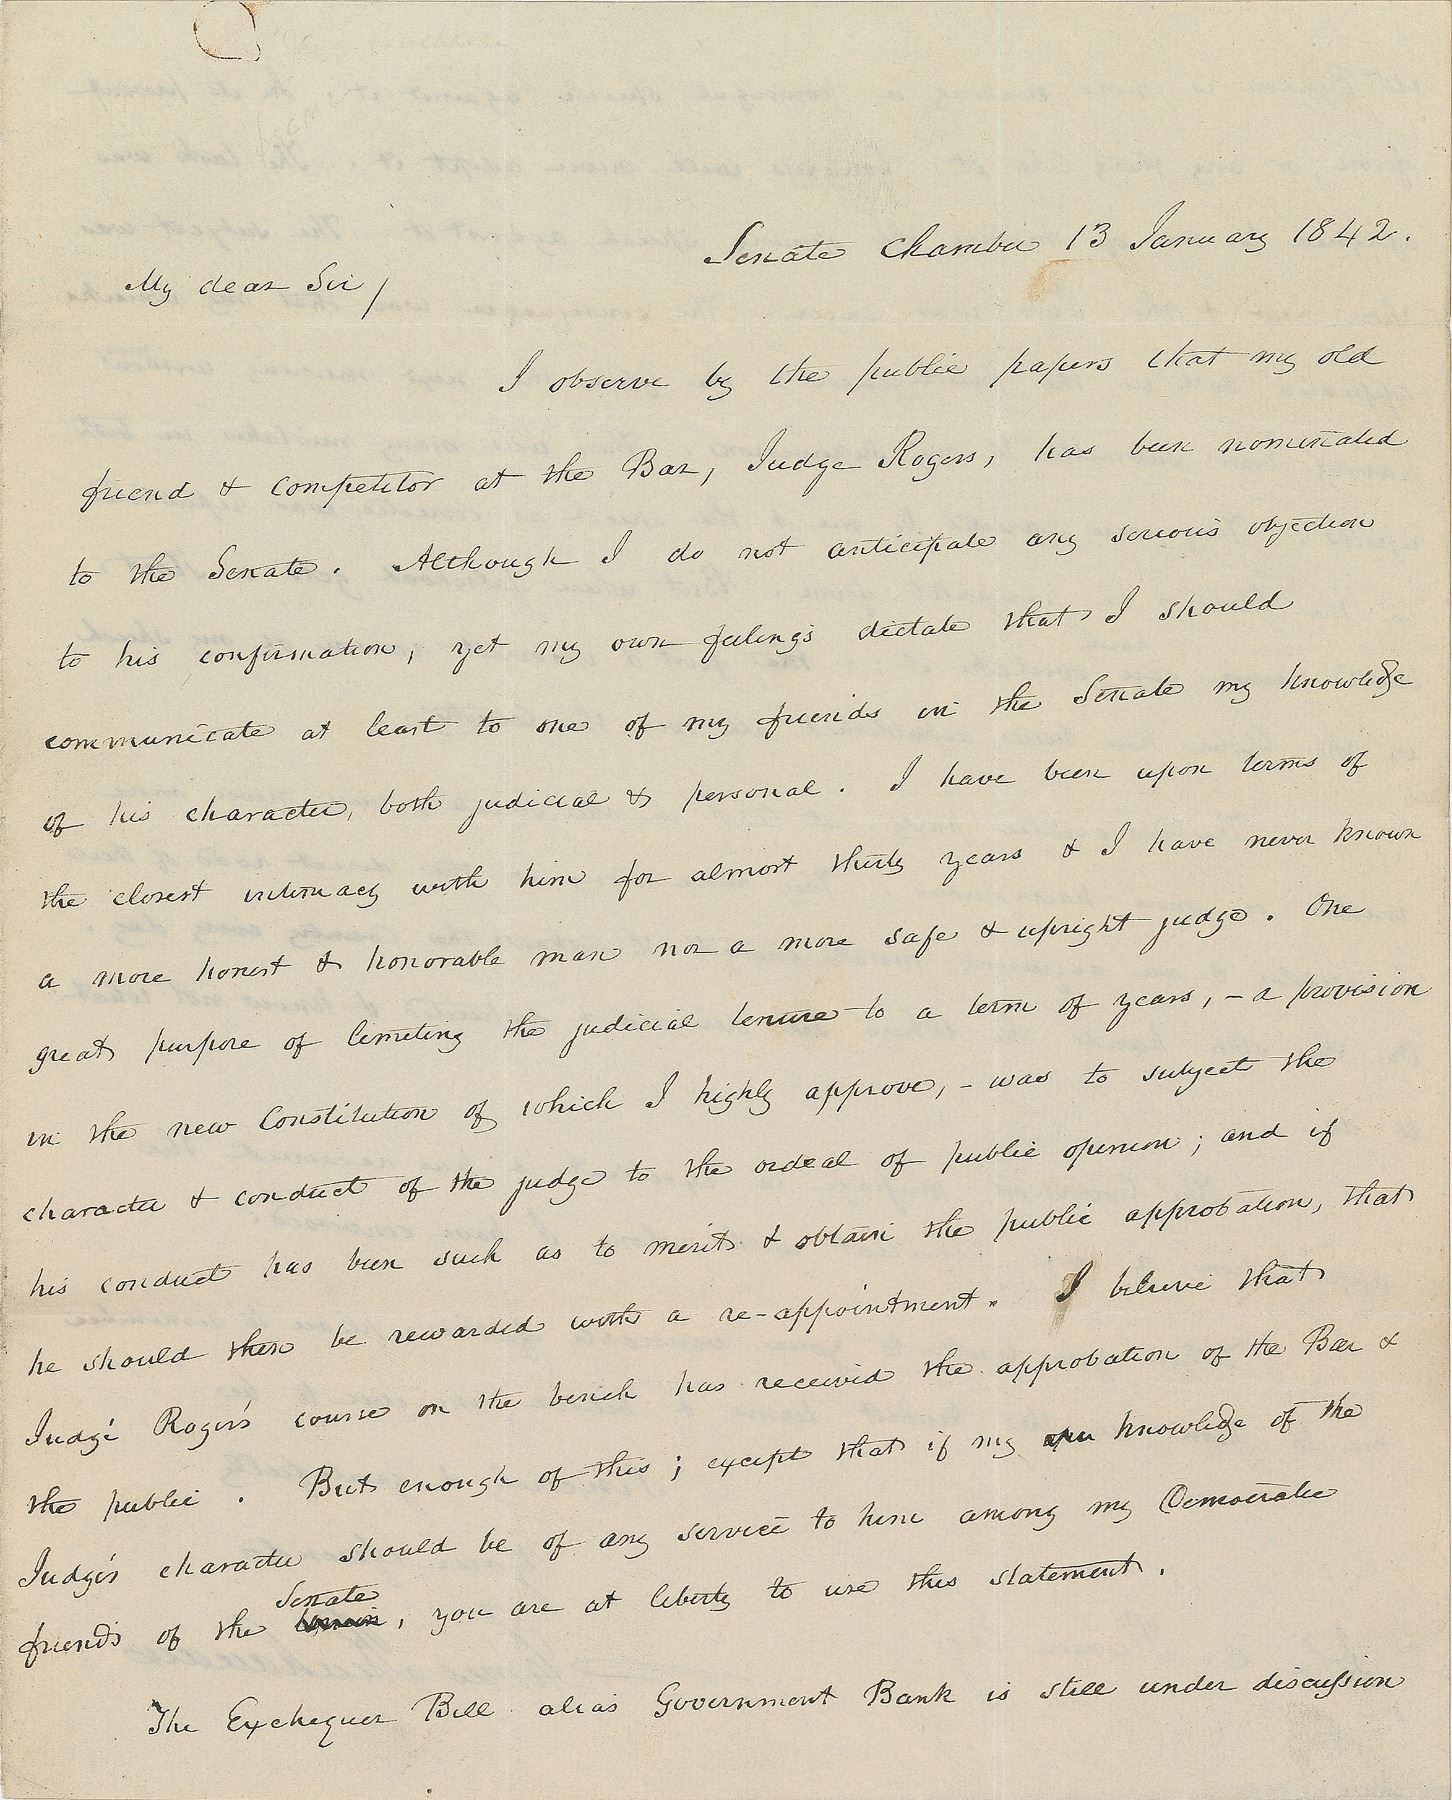 Senate Chamber 13 January 1842.
My dear Sir/
I observe by the public papers that my old
friend & competitor at the Bar, Judge Rogers, has been nominated
to the Senate. Although I do not anticipate any serious objection
to his confirmation, yet my own feelings dictate that I should
communicate at least to one of my friends in the Senate my knowledge
of his character, both judicial & personal. I have been upon terms of
the closest intimacy with him for almost thirty years & I have never known
a more honest & honorable man nor a more safe & upright judge. One
great purpose of limiting the judicial tenure to a term of years, - a provision
in the new Constitution of which I highly approve, - was to subject the
character & conduct of the judge to the ordeal of public opinion; and if
his conduct has been such as to merit & obtain the public approbation, that
he should then be rewarded with a re-appointment. I believe that
Judge Roger's course on the bench has received the approbation of the Bar &
the public. But enough of this; except that if my knowledge of the
Judge's character should be of any service to him among my Democratic
Senate
friends of the , you are at liberty to use this statement.
The Exchequer Bill alias Government Bank is still under discussion